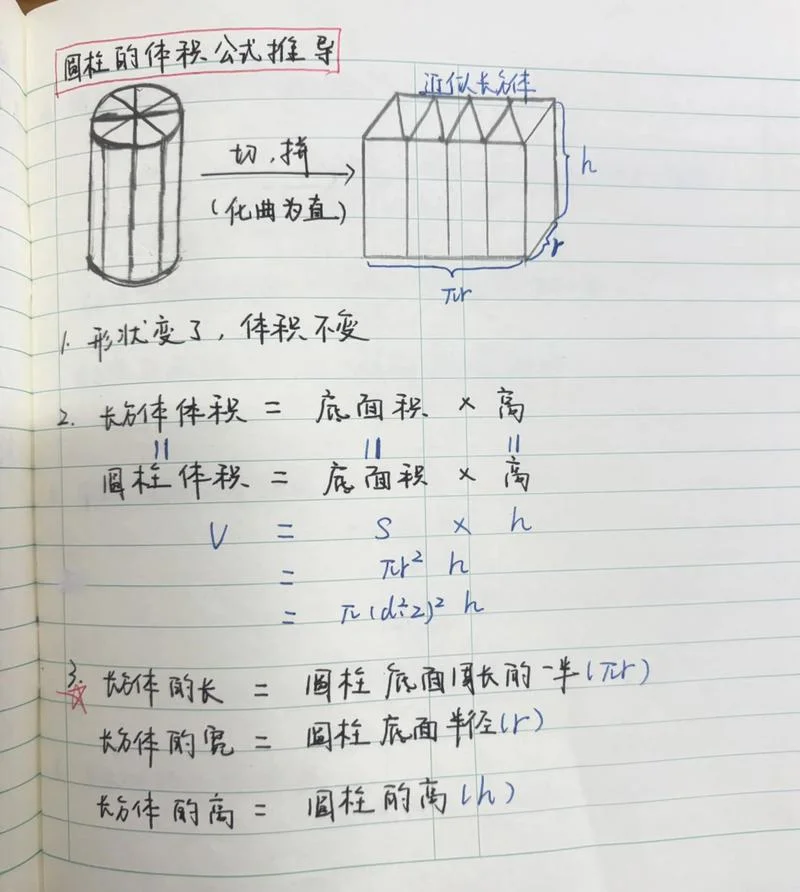 圆柱的体积公式推导
近似长方体
切,拼
(化曲为直)
h
r
πr
1. 形状变了,体积不变
2. 长方体体积 = 底面积 × 高
= = =
圆柱体积 = 底面积 × 高
V = S × h
= πr² h
= π(d÷2)² h
3. 长方体的长 = 圆柱底面周长的一半(πr)
长方体的宽 = 圆柱底面半径(r)
长方体的高 = 圆柱的高(h)